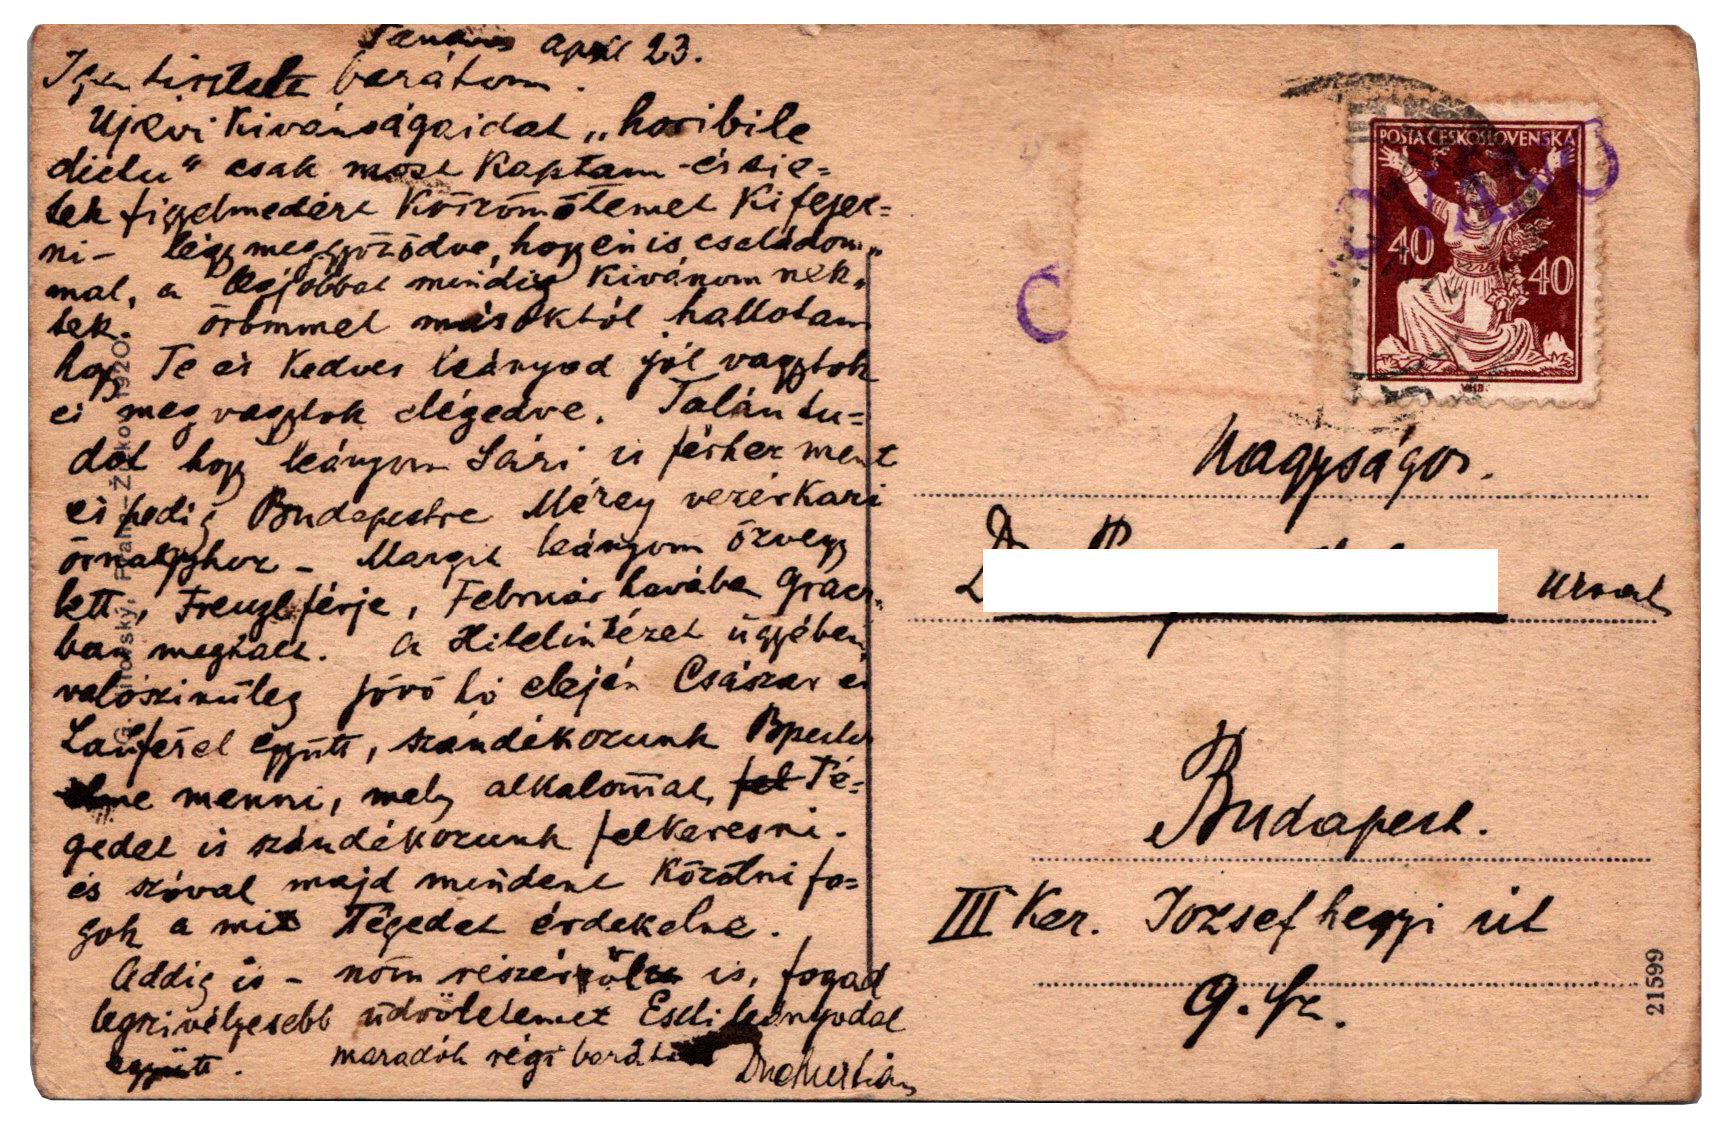 april 23.
Igen tisztelt barátom.
Ujévi kivánságaidat „horibile
dictu“ csak most kaptam - és sie=
tek figyelmedért köszönőtemet kifejez=
ni - légy meggyőződve, hogy én is családom„
mal, a legjobbat mindig kivánom nek„
tek. örömmel másoktól hallotam
hogy Te és kedves leányod jól vagytok
és meg vagytok elégedve. Talán tu=
dod hogy leányom Sári is férhez ment
és pedig Budapestre Mérey vezérkari
őrnagyhoz - Margit leányom özvegy
lett, férje, Február havába Graez„
ban meghalt. A Hitelintézet ügyében
valószinüleg jövő hó elején Császar és
együtt, szándékozunk Bpestre
menni, mely alkalommal, fel Té=
gedet is szándékozunk felkeresni.
és szóval majd mindent közölni fo=
gok a mit Tégedet érdekelne.
Addig is - nőm részéről is, fogad
legszivélyesebb üdvözletemet Esti leányodal
együtt. maradók régi barátod
POSTA ČESKOSLOVENSKÁ
40 40
Nagyságos.
Dr
urnak
Budapest.
III Ker. Jozsefhegyi út
9. sz.
21599
1920.